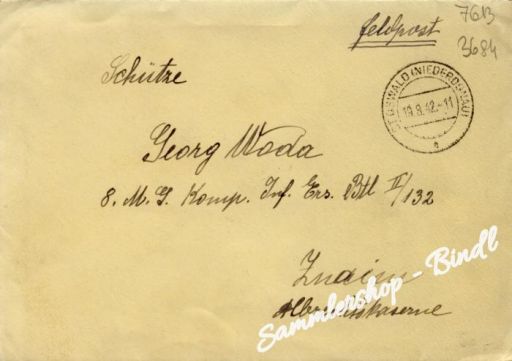 7613
feldpost
3684
Schütze
ST. OSWALD (NIEDERDONAU)
19.8.42.-11
Georg Woda
8. M. G. Komp. Inf. Ers. Btl II/132
Znaim
kaserne
Sammlershop - Bindl